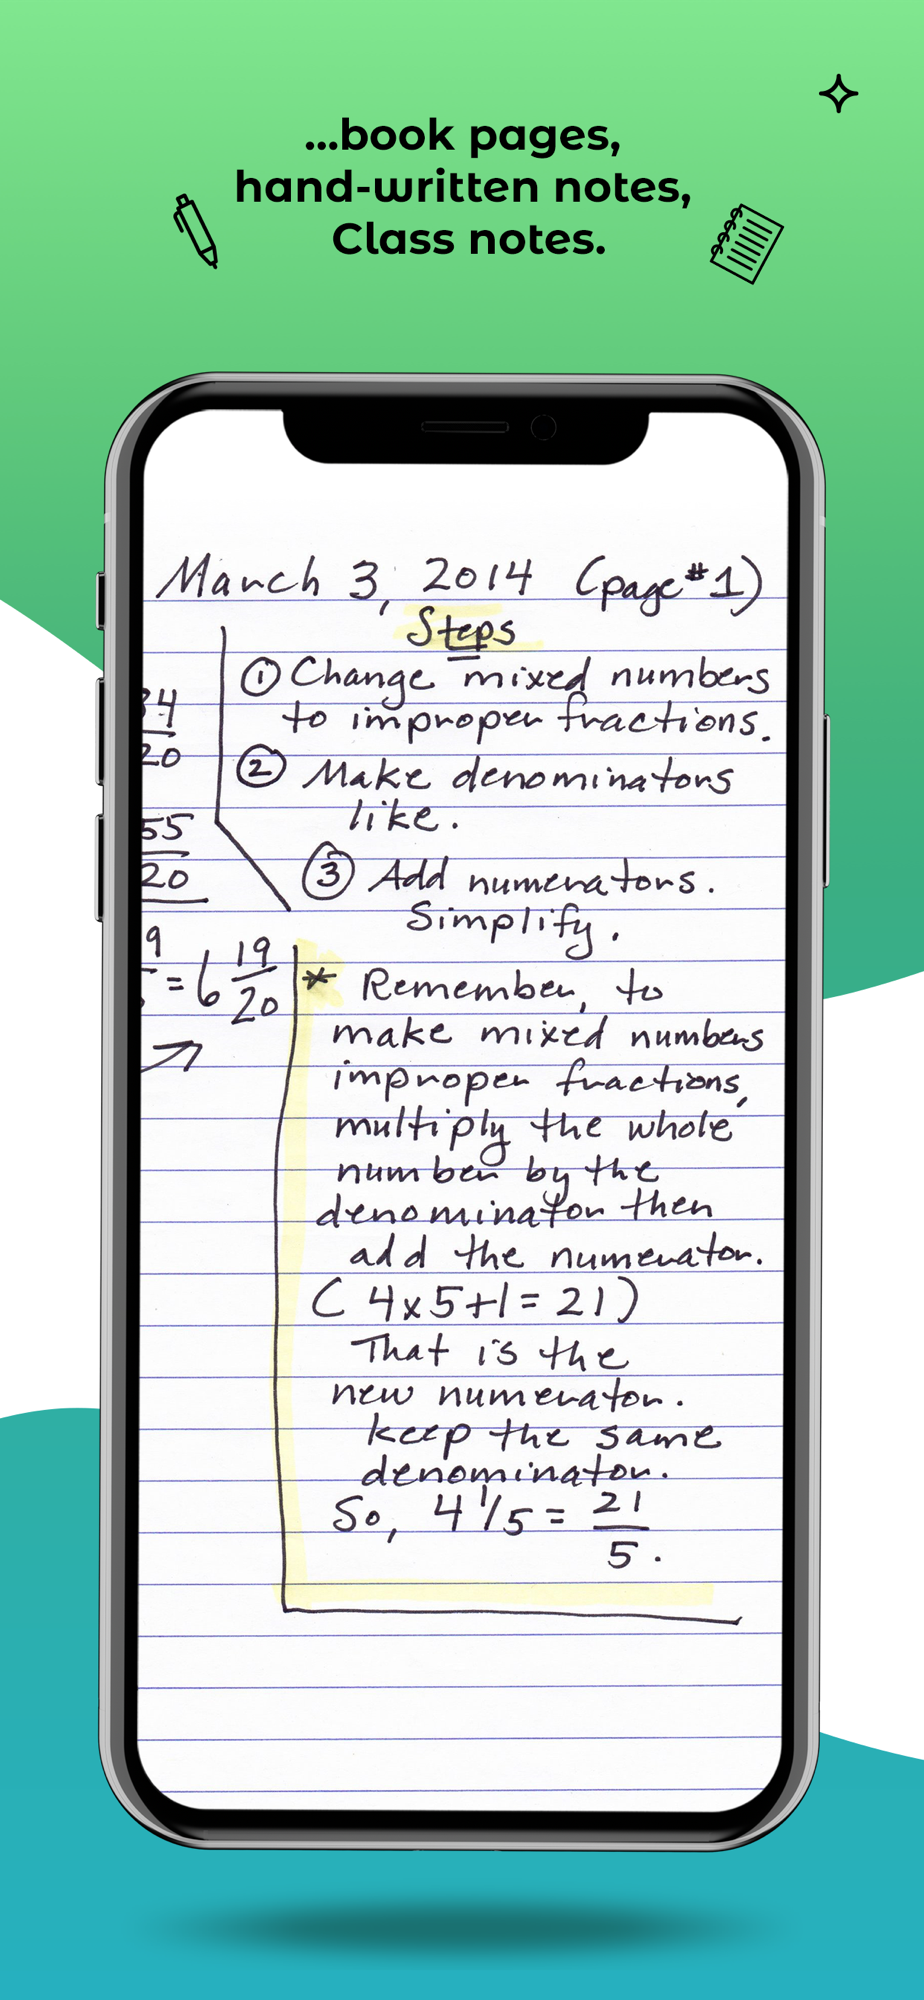 ...book pages,
hand-written notes,
Class notes.
March 3, 2014 (page #1)
Steps
① Change mixed numbers
to improper fractions.
② Make denominators
like.
③ Add numerators.
Simplify.
34
20
55
20
9
= 6 19/20
* Remember, to
make mixed numbers
improper fractions,
multiply the whole
number by the
denominator then
add the numerator.
( 4x5+1= 21)
That is the
new numerator.
keep the same
denominator.
So, 4 1/5 = 21
5.